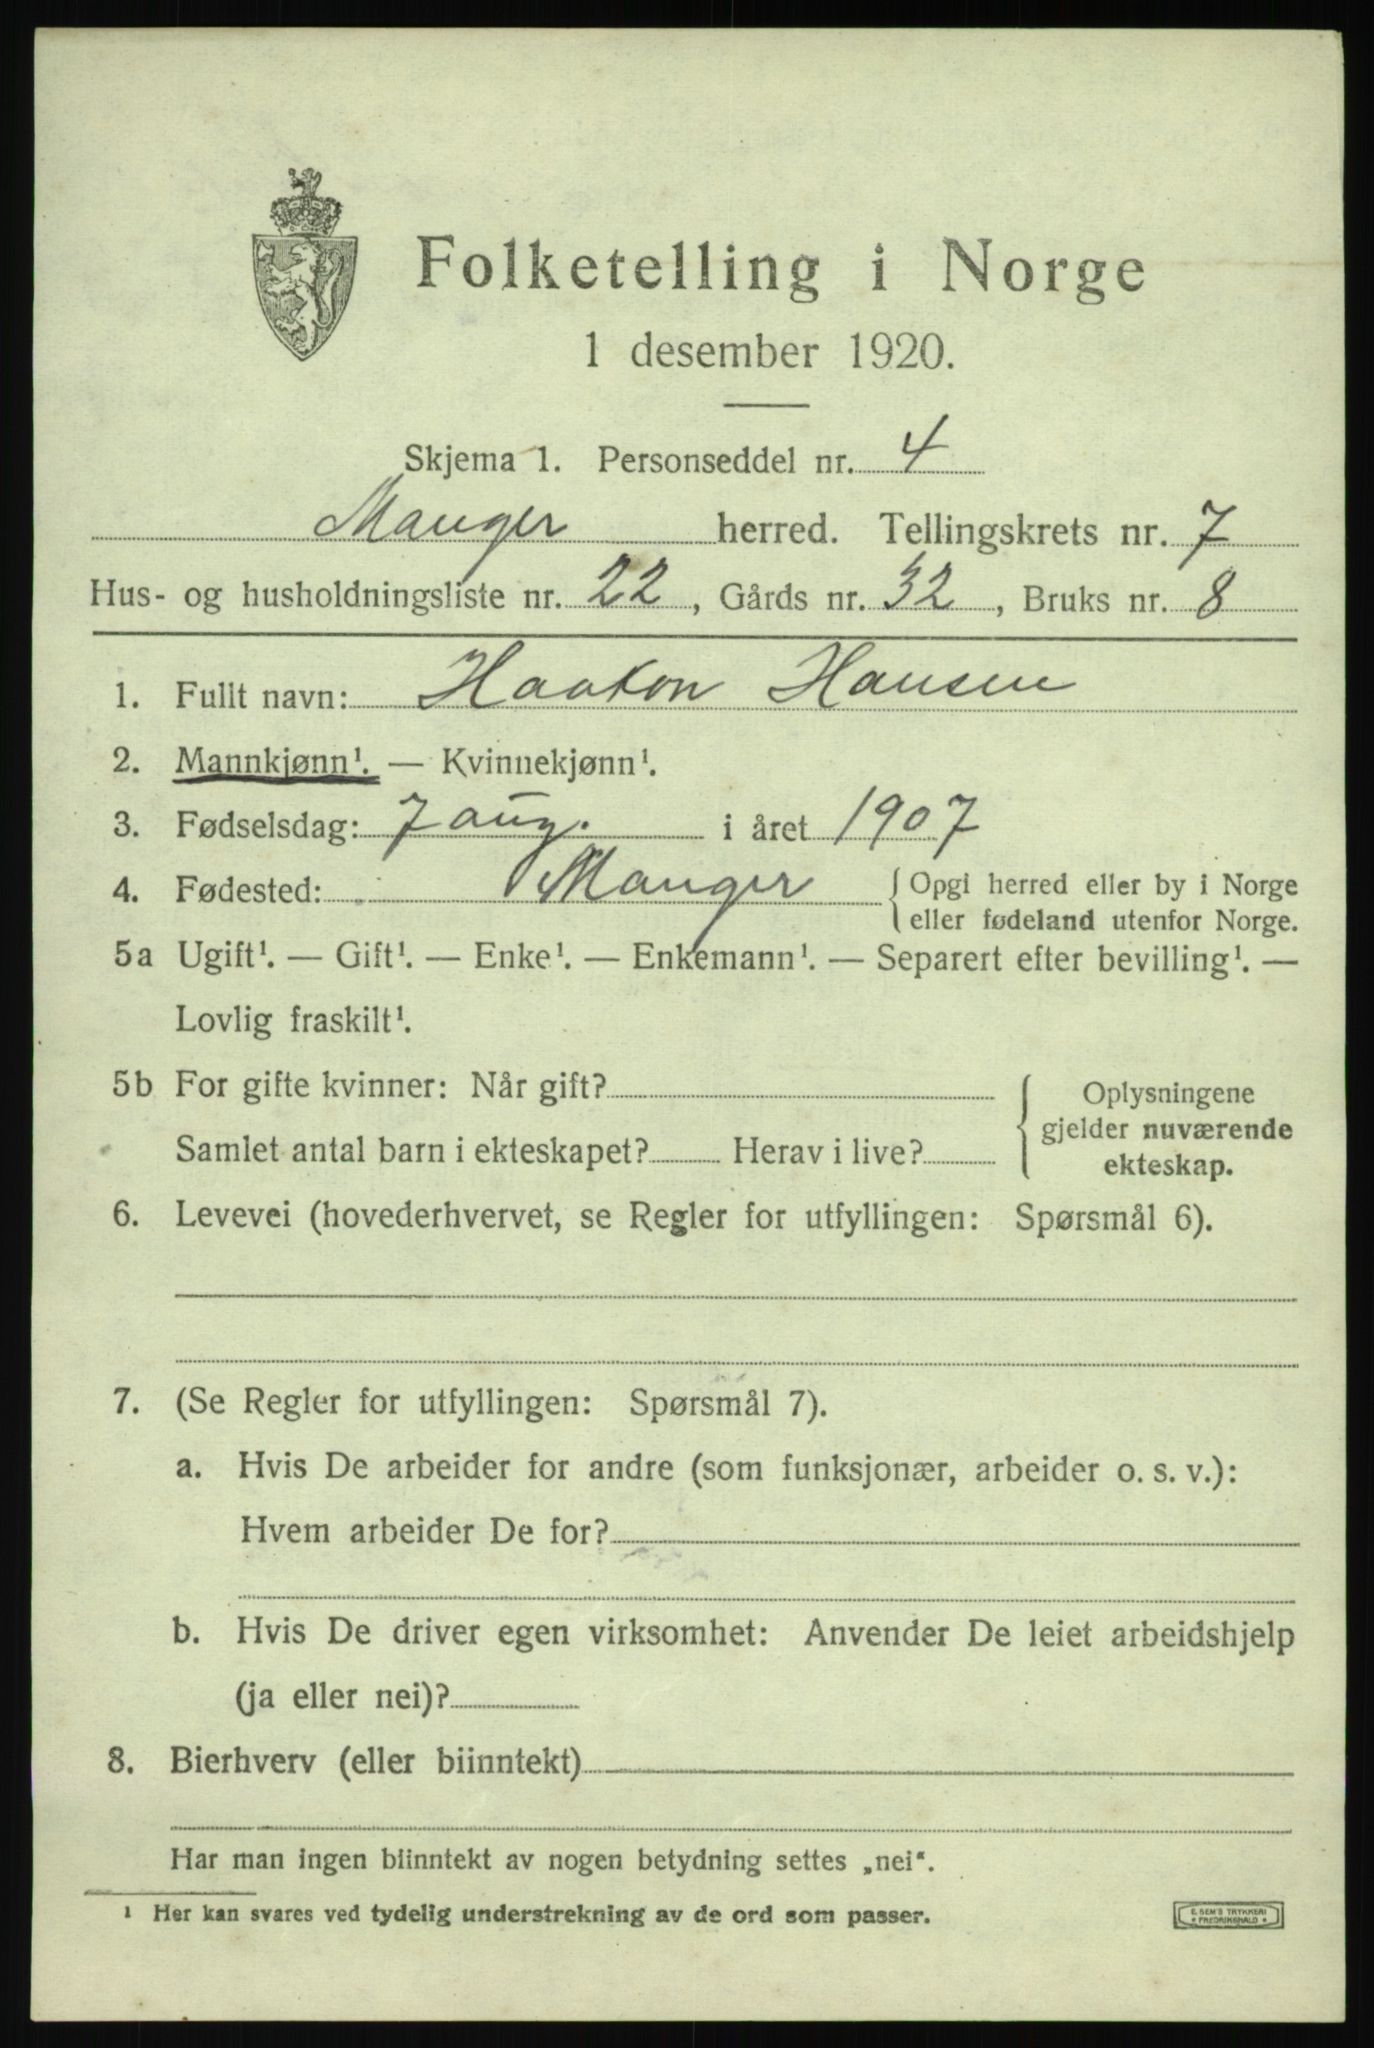 Folketelling i Norge
1 desember 1920.
Skjema 1. Personseddel nr. 4
Manger herred. Tellingskrets nr. 7
Hus- og husholdningsliste nr. 22, Gårds nr. 32, Bruks nr. 8
1. Fullt navn: Haakon Hansen
2. Mannkjønn¹. — Kvinnekjønn¹.
3. Fødselsdag: 7 aug. i året 1907
4. Fødested: Manger { Opgi herred eller by i Norge
eller fødeland utenfor Norge.
5a Ugift¹. — Gift¹. — Enke¹. — Enkemann¹. — Separert efter bevilling¹. —
Lovlig fraskilt¹.
5b For gifte kvinner: Når gift? { Oplysningene
gjelder nuværende
Samlet antal barn i ekteskapet? Herav i live?
ekteskap.
6. Levevei (hovederhvervet, se Regler for utfyllingen: Spørsmål 6).
7. (Se Regler for utfyllingen: Spørsmål 7).
a. Hvis De arbeider for andre (som funksjonær, arbeider o. s. v.):
Hvem arbeider De for?
b. Hvis De driver egen virksomhet: Anvender De leiet arbeidshjelp
(ja eller nei)?
8. Bierhverv (eller biinntekt)
Har man ingen biinntekt av nogen betydning settes „nei“.
¹ Her kan svares ved tydelig understrekning av de ord som passer.
E. SEM'S TRYKKERI
* FREDRIKSHALD *